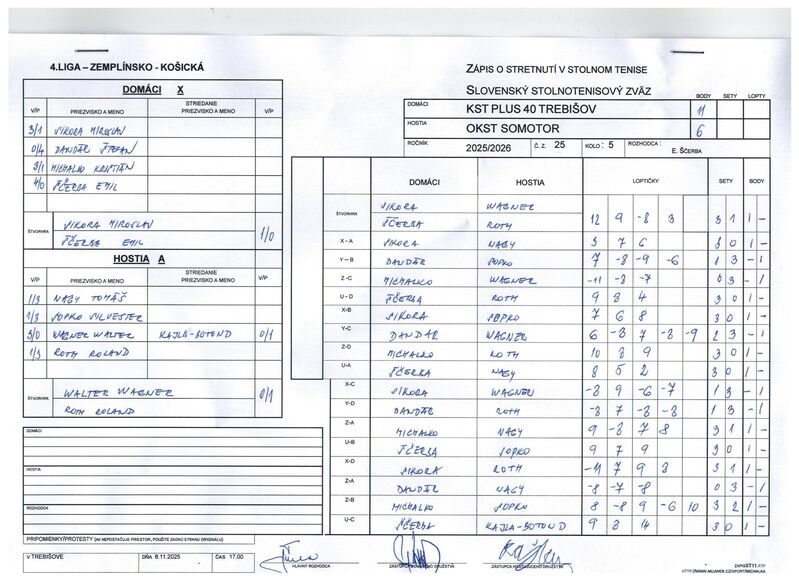 4.LIGA – ZEMPLÍNSKO - KOŠICKÁ
DOMÁCI X
V/P PRIEZVISKO A MENO STRIEDANIE PRIEZVISKO A MENO V/P
3/1 SIKORA MIROSLAV
0/4 DANDÁR ŠTEFAN
3/1 MICHALKO KRISTIÁN
4/0 ŠČERBA EMIL
ŠTVORHRA SIKORA MIROSLAV
ŠČERBA EMIL 1/0
HOSTIA A
V/P PRIEZVISKO A MENO STRIEDANIE PRIEZVISKO A MENO V/P
1/3 NAGY TOMÁŠ
1/3 POPKO SILVESTER
3/0 WAGNER WALTER KAJLA-BOTOND 0/1
1/3 ROTH ROLAND
ŠTVORHRA WALTER WAGNER
ROTH ROLAND 0/1
DOMÁCI
HOSTIA
ROZHODCA
PRIPOMIENKY/PROTESTY (AK NEPOSTAČUJE PRIESTOR, POUŽITE ZADNÚ STRANU ORIGINÁLU)
V TREBIŠOVE DŇA 8.11.2025 ČAS 17.00
HLAVNÝ ROZHODCA
ZÁSTUPCA HOSŤUJÚCEHO DRUŽSTVA
ZÁPIS O STRETNUTÍ V STOLNOM TENISE
SLOVENSKÝ STOLNOTENISOVÝ ZVÄZ
BODY SETY LOPTY
DOMÁCI KST PLUS 40 TREBIŠOV 11
HOSTIA OKST SOMOTOR 6
ROČNÍK 2025/2026 č. z. 25 KOLO : 5 ROZHODCA : E. ŠČERBA
DOMÁCI HOSTIA LOPTIČKY SETY BODY
ŠTVORHRA SIKORA WAGNER
ŠČERBA ROTH 12 9 -8 3 3 1 1 -
X - A SIKORA NAGY 3 7 6 3 0 1 -
Y – B DANDÁR POPKO 7 -8 -9 -6 1 3 - 1
Z -C MICHALKO WAGNER -11 -8 -7 0 3 - 1
U - D ŠČERBA ROTH 9 8 4 3 0 1 -
X-B SIKORA POPKO 7 6 8 3 0 1 -
Y-C DANDÁR WAGNER 6 -8 7 -8 -9 2 3 - 1
Z-D MICHALKO ROTH 10 8 9 3 0 1 -
U-A ŠČERBA NAGY 8 5 2 3 0 1 -
X-C SIKORA WAGNER -8 9 -6 -7 1 3 - 1
Y-D DANDÁR ROTH -8 7 -8 -8 1 3 - 1
Z-A MICHALKO NAGY 9 -8 7 8 3 1 1 -
U-B ŠČERBA POPKO 9 7 9 3 0 1 -
X-D SIKORA ROTH -11 7 9 8 3 1 1 -
Z-A DANDÁR NAGY -8 -7 -8 0 3 - 1
Z-B MICHALKO POPKO 8 -8 9 -6 10 3 2 1 -
U-C ŠČERBA KAJLA-BOTOND 9 8 14 3 0 1 -